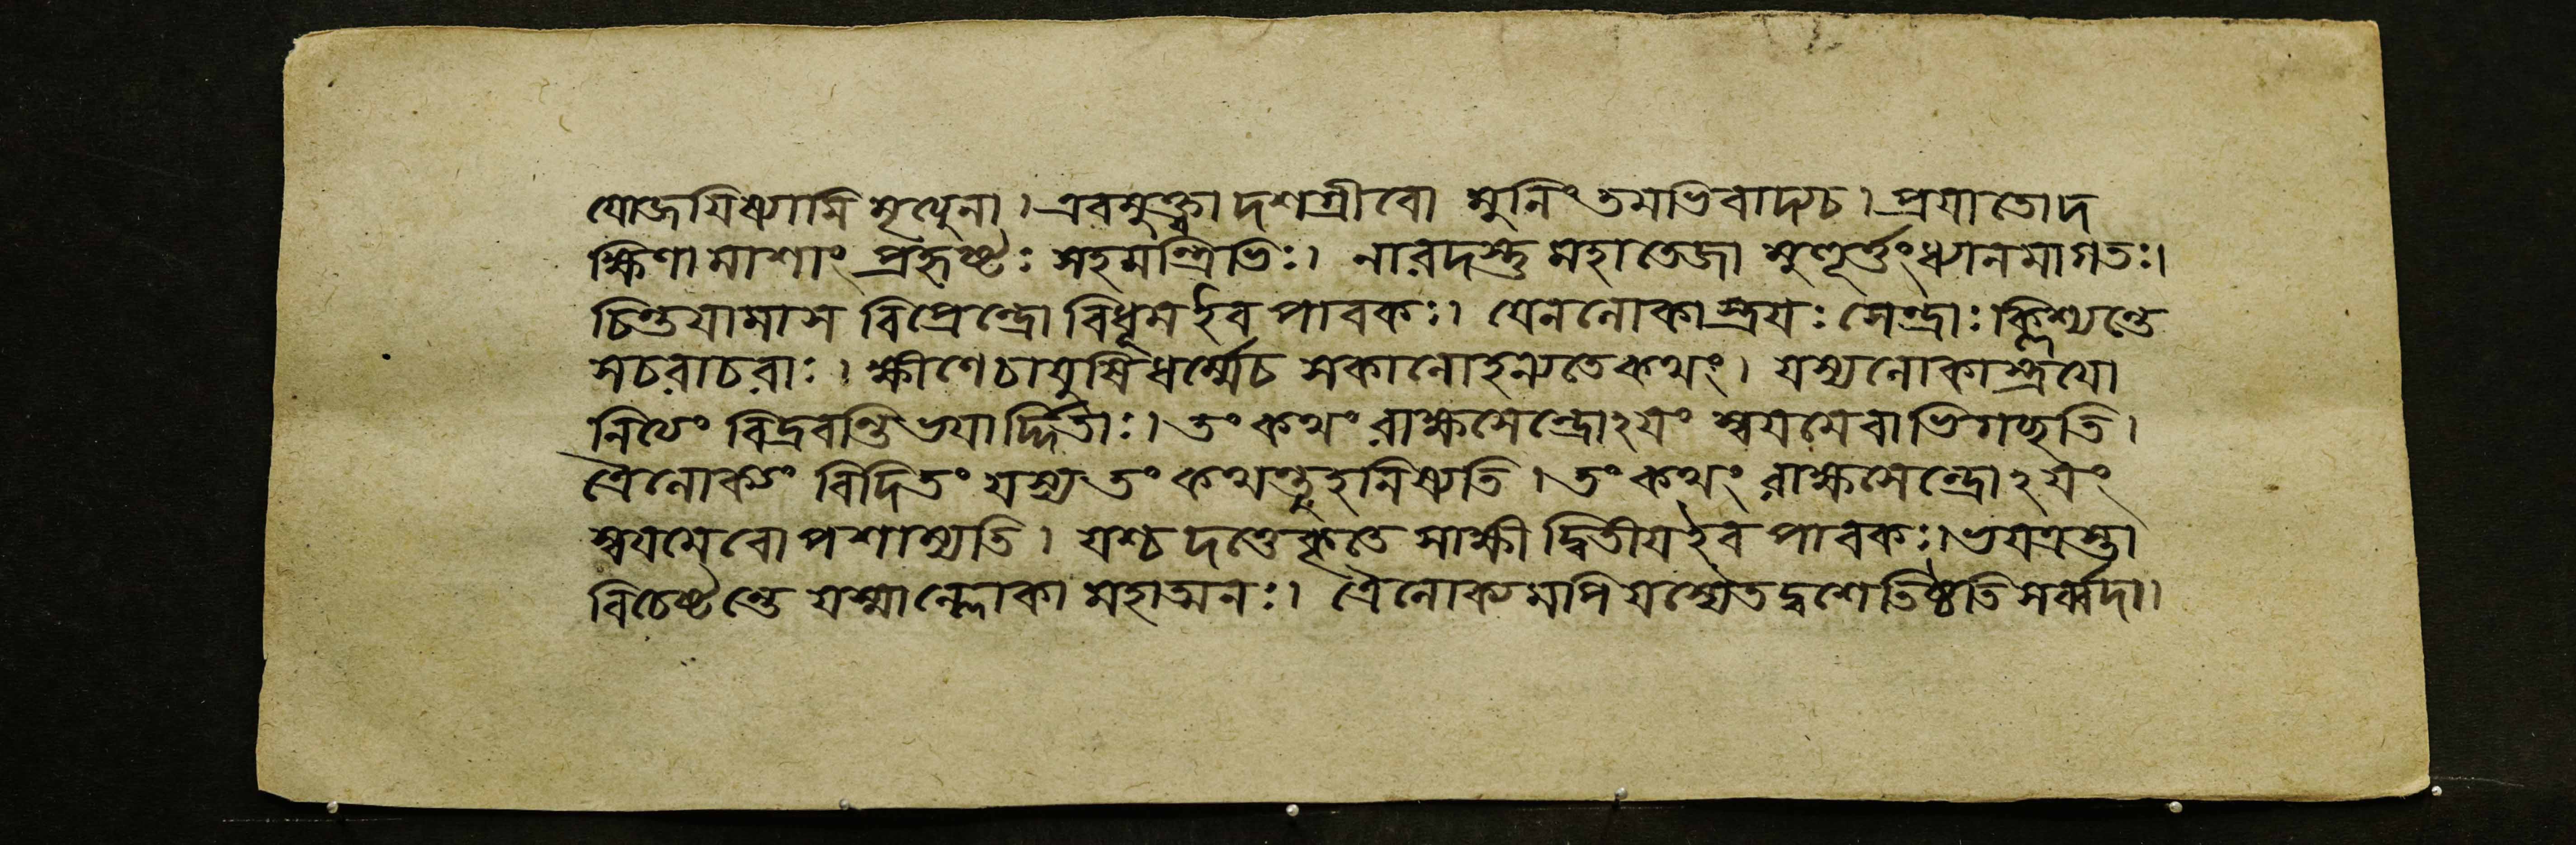 যোজযিষ্যামি মৃত্যুনা। এবমুক্ত্বা দশগ্রীবো মুনিং তমভিবাদ্যচ। প্রযাতোদ
ক্ষিণামাশাং প্রহৃষ্টৈঃ সহমন্ত্রিভিঃ। নাৰদস্তু মহাতেজা মুহূর্ত্তংধ্যানমাগতঃ।
চিন্তযামাস বিপ্রেন্দ্রো বিধূমইব পাবকঃ। যেনলোকাস্ত্রযঃ সেন্দ্রাঃ ক্লিশ্যন্তে
সচৰাচৰাঃ। ক্ষীণেচাযুষিধর্ম্মেচ সকালোহন্যতেকথং। যস্যলোকাস্ত্রযো
নিত্যং বিদ্রবন্তিভযার্দ্দিতাঃ। তং কথং ৰাক্ষসেন্দ্রোঽযং স্বযমেবাভিগচ্ছতি।
ত্রৈলোক্যং বিদিতং যস্য তং কথন্তুহনিষ্যতি। তং কথং ৰাক্ষসেন্দ্রোঽযং
স্বযমেবোপশাস্যতি। যশ্চ দণ্ডেকৃতে সাক্ষী দ্বিতীযইব পাবকঃ। ভযত্রস্তা
বিচেষ্টন্তে যস্মাল্লোকা মহাত্মনঃ। ত্রৈলোক্যমপি যস্যৈতদ্বশেতিষ্ঠতি সর্ব্বদা।